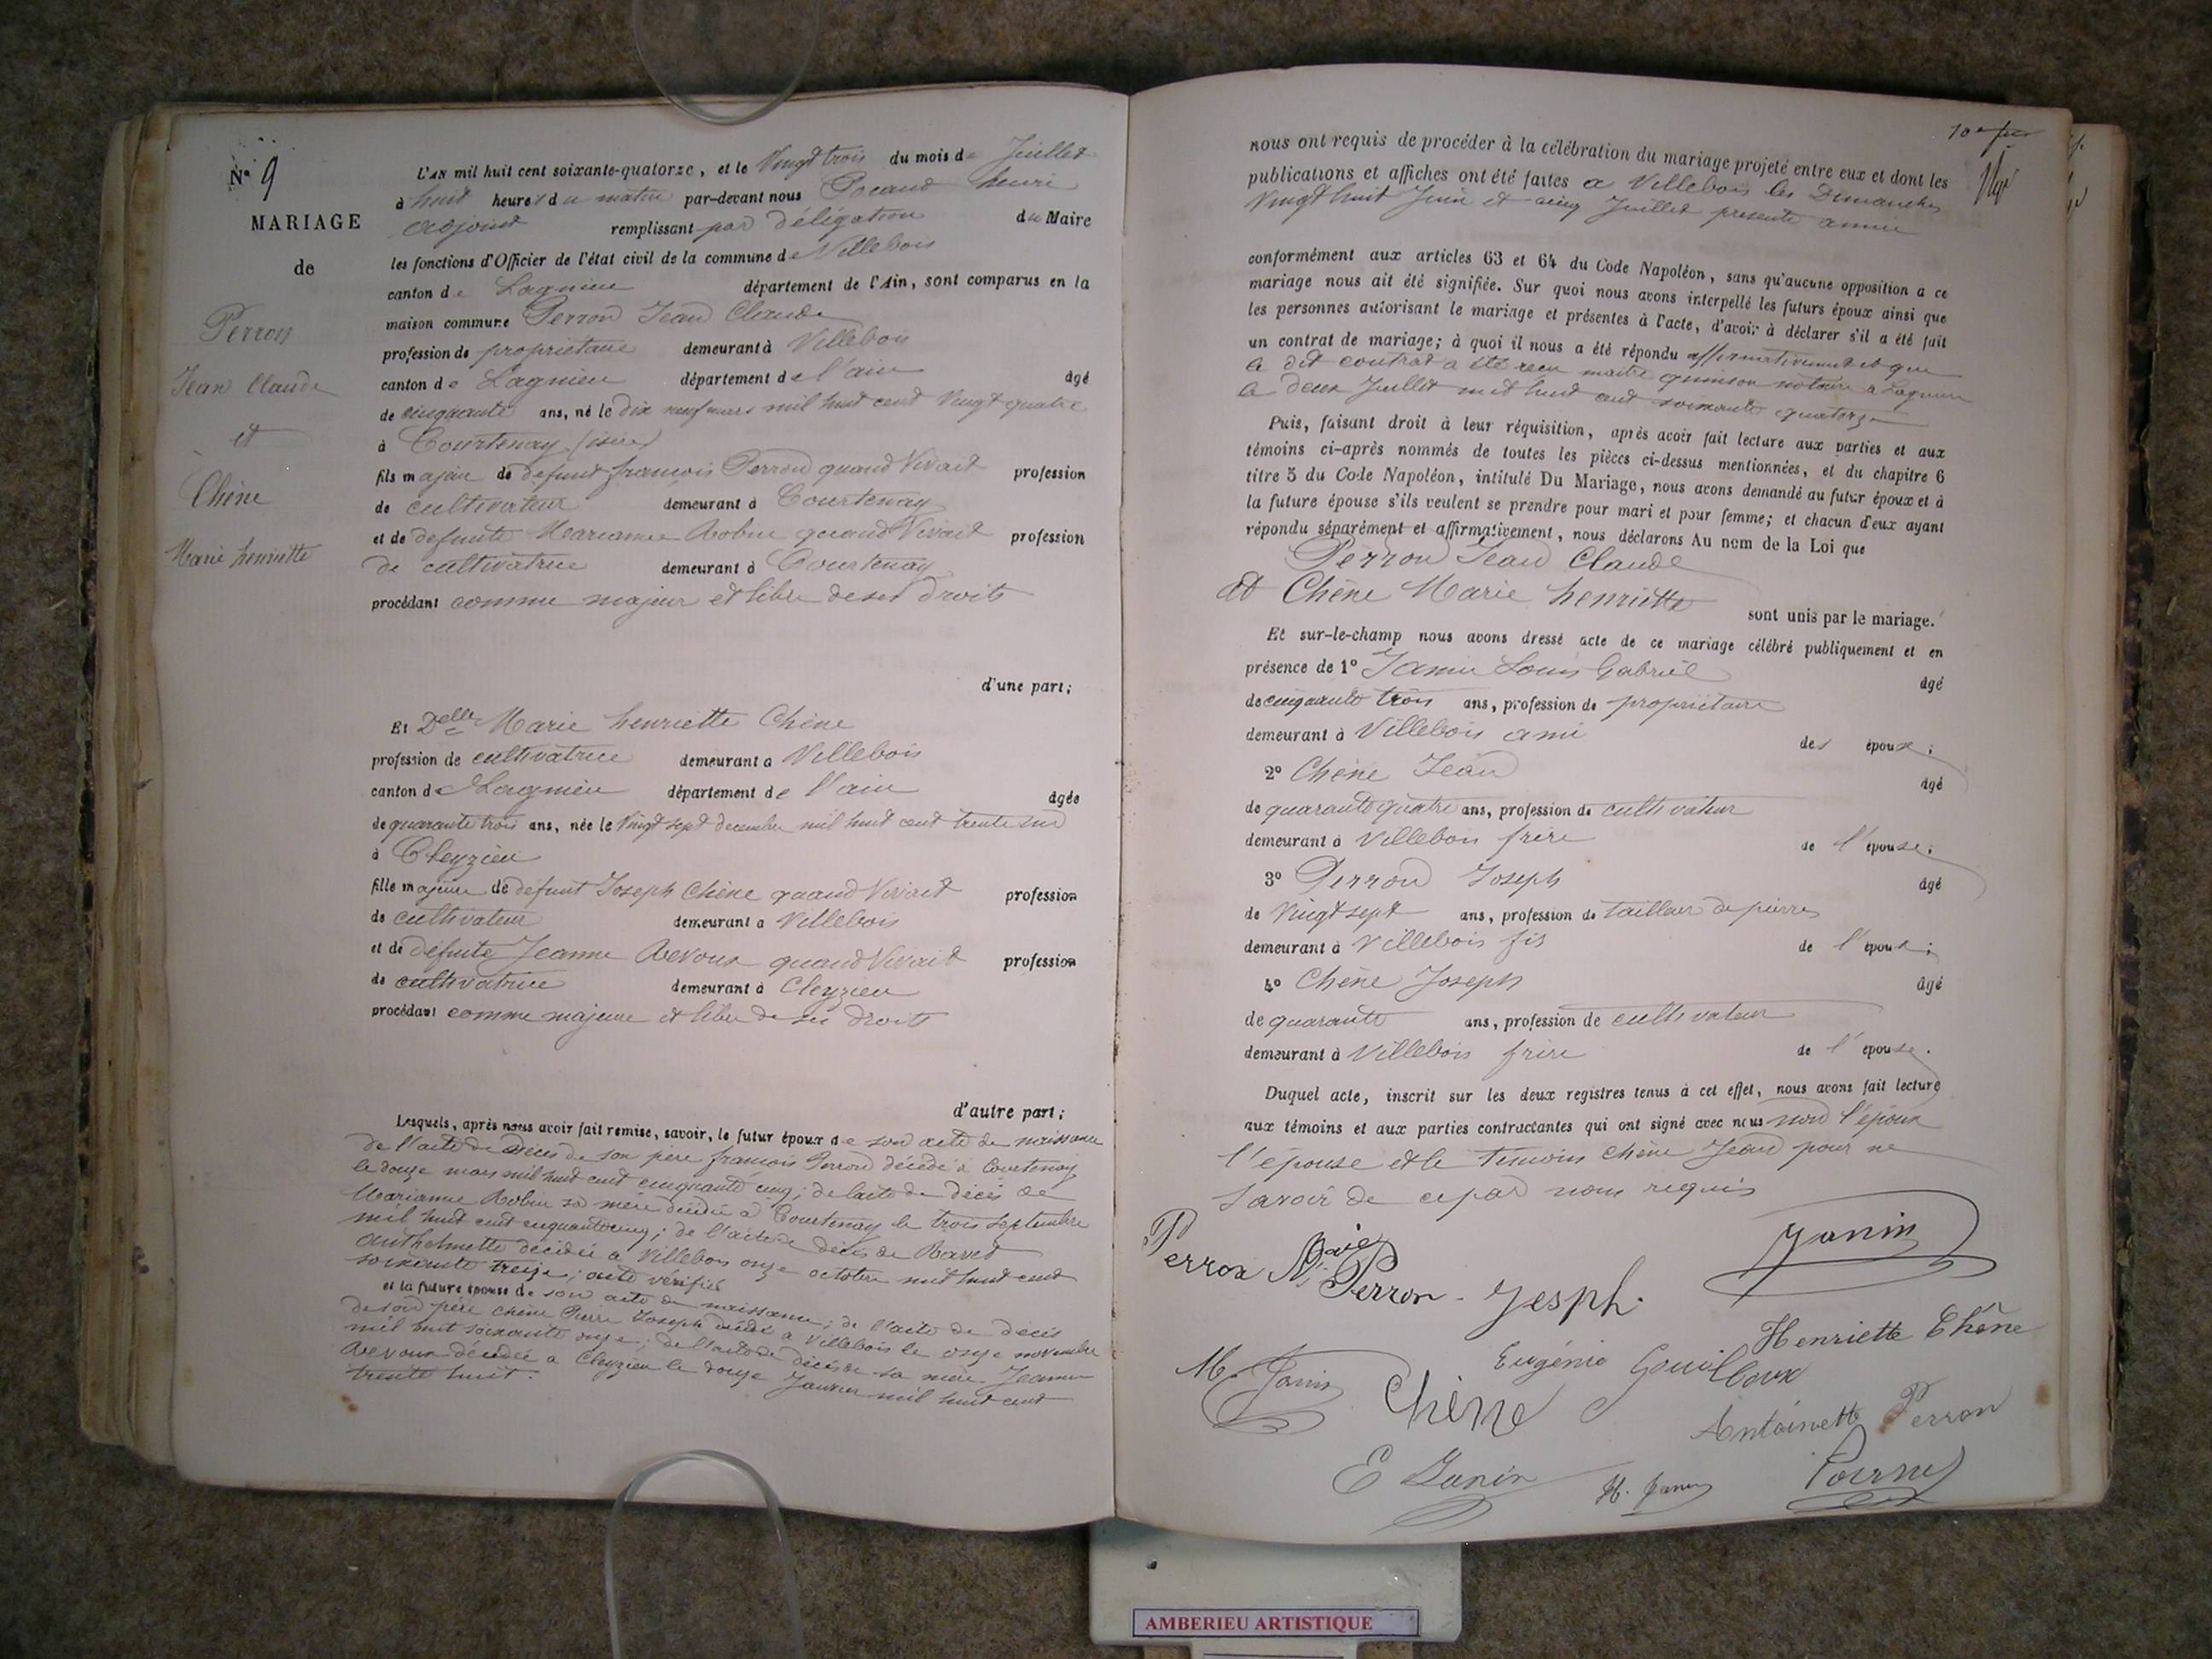 N° 9
MARIAGE
de
Perron
Jean Claude
et
Chêne
Marie henriette
L'AN mil huit cent soixante-quatorze, et le Vingt trois du mois de Juillet
à huit heures du matin par-devant nous henri
adjoint remplissant par délégation du Maire
les fonctions d'Officier de l'état civil de la commune de Villebois
canton de Lagnieu département de l'Ain, sont comparus en la
maison commune Perron Jean Claude
profession de propriétaire demeurant à Villebois
canton de Lagnieu département de l'ain âgé
de cinquante ans, né le dix neuf mars mil huit cent Vingt quatre
à Courtenay (isère)
fils majeur de defunt francois Perron quand Vivait profession
de cultivateur demeurant à Courtenay
et de defunte Marianne Robin quand Vivait profession
de cultivatrice demeurant à Courtenay
procédant comme majeur et libre de ses droits
d'une part;
Et Delle Marie henriette Chêne
profession de cultivatrice demeurant a Villebois
canton de Lagnieu département de l'ain âgée
de quarante trois ans, née le Vingt sept decembre mil huit cent trente
à Cleyzieu
fille majeure de défunt Joseph Chêne quand Vivait profession
de cultivateur demeurant a Villebois
et de défunte Jeanne Revoux quand Vivait profession
de cultivatrice demeurant à Cleyzieu
procédant comme majeure et libre de ses droits
d'autre part;
Lesquels, après nous avoir fait remise, savoir, le futur époux de son acte de naissance
de l'acte de décès de son père francois Perron décédé à Courtenay
le douze mars mil huit cent cinquante cinq; de l'acte de décès de
Marianne Robin sa mère décédée à Courtenay le trois septembre
mil huit cent cinquante cinq; de l'acte de décès de Ravet
Anthelmette décédée a Villebois onze octobre mil huit cent
soixante treize; acte vérifiés
et la future épouse de son acte de naissance; de l'acte de décès
de son père chêne Pierre Joseph décédé a Villebois le onze novembre
mil huit soixante onze; de l'acte de décès de sa mère Jeanne
Revoux décédée a Cleyzieu le douze Janvier mil huit cent
trente huit.
nous ont requis de procéder à la célébration du mariage projeté entre eux et dont les
publications et affiches ont été faites a Villebois les Dimanches
Vingt huit Juin et cinq Juillet presente année
conformément aux articles 63 et 64 du Code Napoléon, sans qu'aucune opposition a ce
mariage nous ait été signifiée. Sur quoi nous avons interpellé les futurs époux ainsi que
les personnes autorisant le mariage et présentes à l'acte, d'avoir à déclarer s'il a été fait
un contrat de mariage; à quoi il nous a été répondu affirmativement et que
le dit contrat a été recu maitre quinson notaire a Lagnieu
le deux Juillet mil huit cent soixante quatorze
Puis, faisant droit à leur réquisition, après avoir fait lecture aux parties et aux
témoins ci-après nommés de toutes les pièces ci-dessus mentionnées, et du chapitre 6
titre 5 du Code Napoléon, intitulé Du Mariage, nous avons demandé au futur époux et à
la future épouse s'ils veulent se prendre pour mari et pour femme; et chacun d'eux ayant
répondu séparément et affirmativement, nous déclarons Au nom de la Loi que
Perron Jean Claude
et Chêne Marie henriette
sont unis par le mariage.
Et sur-le-champ nous avons dressé acte de ce mariage célébré publiquement et en
présence de 1° Janin Louis Gabriel âgé
de cinquante trois ans, profession de propriétaire
demeurant à Villebois ami des époux;
2° Chêne Jean âgé
de quarante quatre ans, profession de cultivateur
demeurant à Villebois frère de l'épouse;
3° Perron Joseph âgé
de Vingt sept ans, profession de tailleur de pierres
demeurant à Villebois fis de l'époux;
4° Chêne Joseph âgé
de quarante ans, profession de cultivateur
demeurant à Villebois frère de l'épouse.
Duquel acte, inscrit sur les deux registres tenus à cet effet, nous avons fait lecture
aux témoins et aux parties contractantes qui ont signé avec nous non l'époux
l'épouse et le témoins chêne Jean pour ne
savoir de ce par nous requis
Perron Marie
Janin
Perron - Jesph.
Henriette Chêne
Eugénie Gouilloux
M. Janin
Chêne
Antoinette Perron
E Janin
H. Janin
AMBERIEU ARTISTIQUE